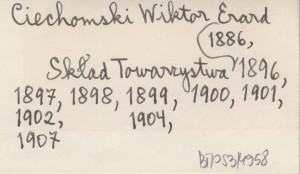 Ciechomski Wiktor Erard
1886,
Skład Towarzystwa 1896,
1897, 1898, 1899, 1900, 1901,
1902, 1904,
1907